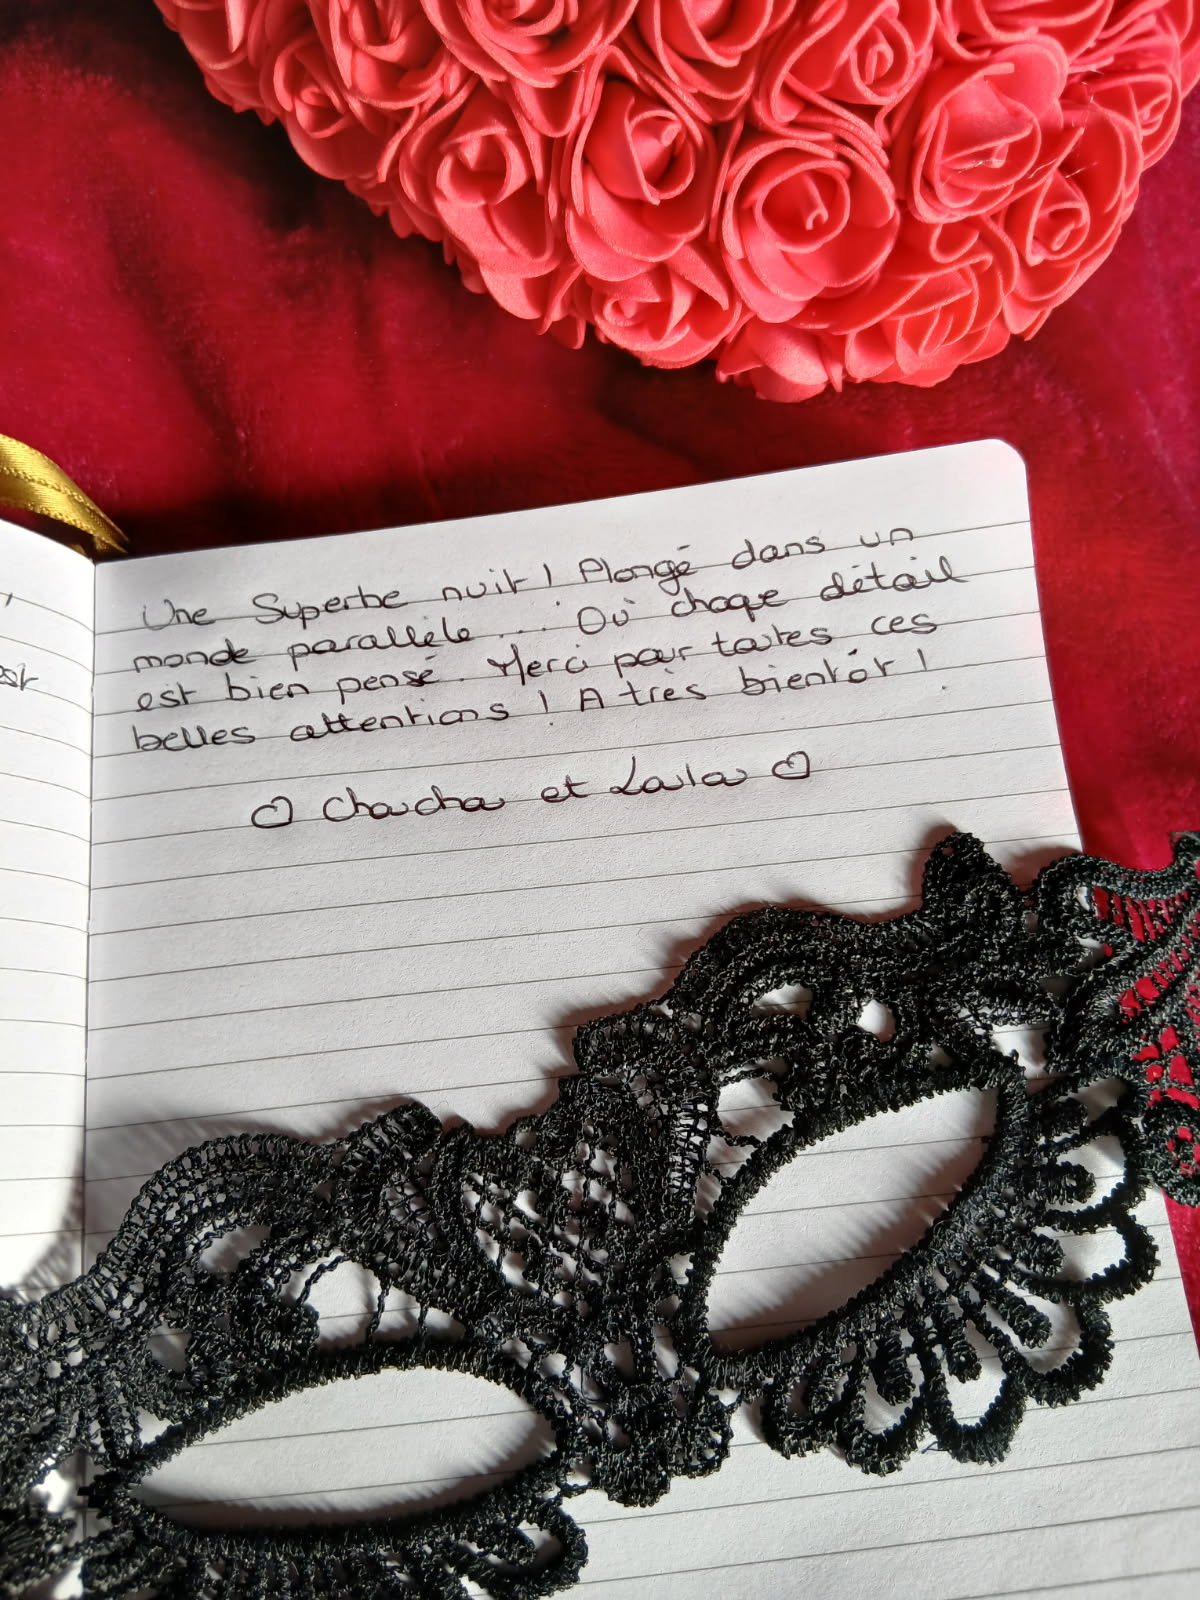 Une Superbe nuit ! Plongé dans un
monde parallèle... Où chaque détail
est bien pensé. Merci pour toutes ces
belles attentions ! A très bientôt !
♡ Chacha et Lala ♡